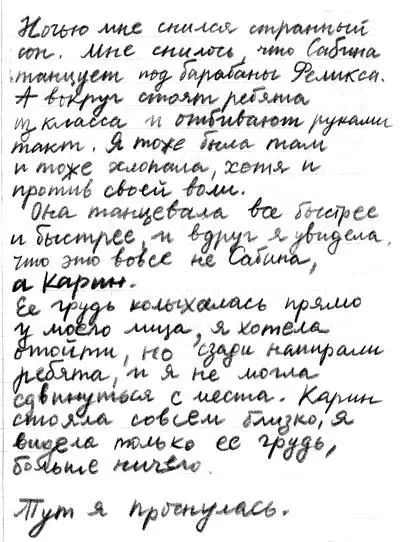 Ночью мне снился странный
сон. Мне снилось, что Сабина
танцует под барабаны Феликса.
А вокруг стоят ребята
из класса и отбивают руками
такт. Я тоже была там
и тоже хлопала, хотя и
против своей воли.
Она танцевала все быстрее
и быстрее, и вдруг я увидела,
что это вовсе не Сабина,
а Карин.
Ее грудь колыхалась прямо
у моего лица, я хотела
отойти, но сзади напирали
ребята, и я не могла
сдвинуться с места. Карин
стояла совсем близко, я
видела только ее грудь,
больше ничего.
Тут я проснулась.